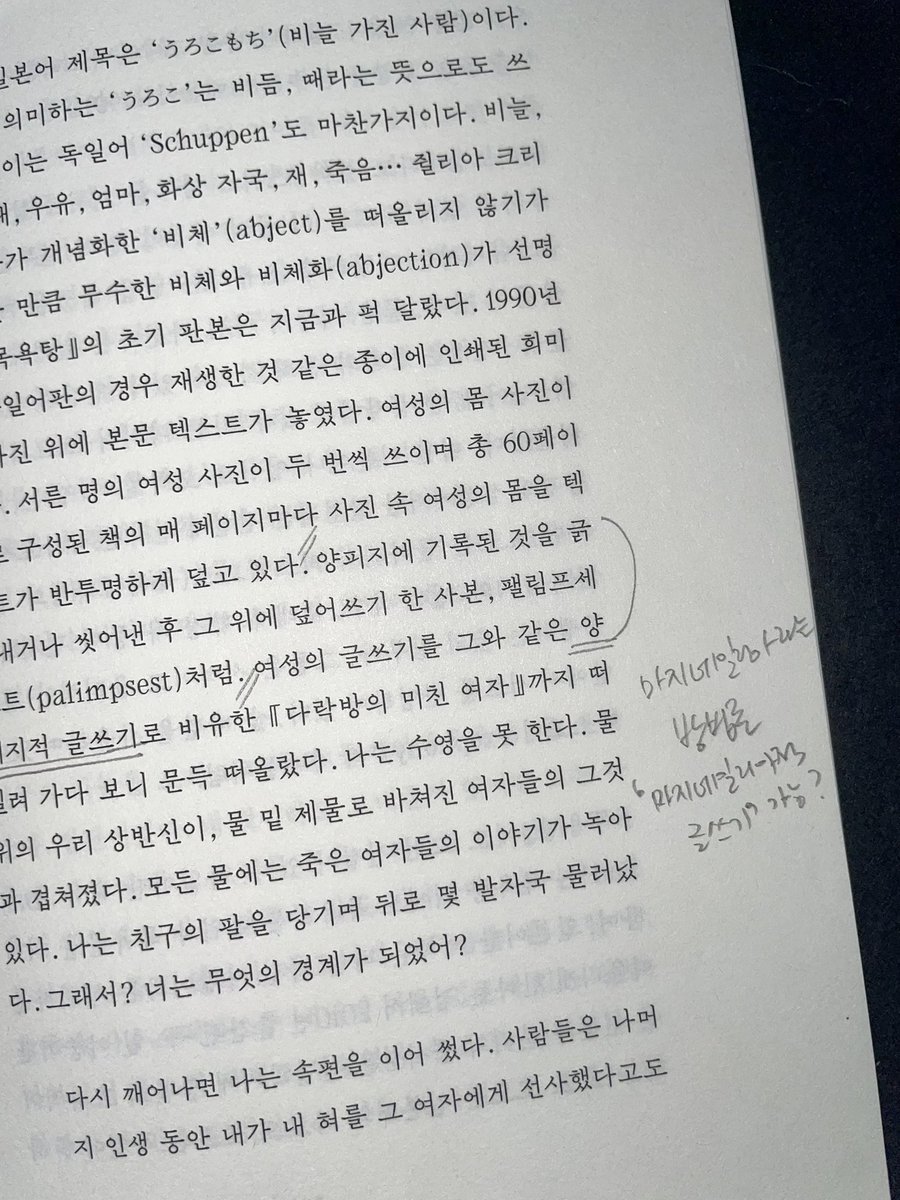 일본어 제목은 ‘うろこもち’(비늘 가진 사람)이다.
의미하는 ‘うろこ’는 비듬, 때라는 뜻으로도 쓰
이는 독일어 ‘Schuppen’도 마찬가지이다. 비늘,
우유, 엄마, 화상 자국, 재, 죽음… 쥘리아 크리
가 개념화한 ‘비체’(abject)를 떠올리지 않기가
만큼 무수한 비체와 비체화(abjection)가 선명
목욕탕』의 초기 판본은 지금과 퍽 달랐다. 1990년
일어판의 경우 재생한 것 같은 종이에 인쇄된 희미
사진 위에 본문 텍스트가 놓였다. 여성의 몸 사진이
. 서른 명의 여성 사진이 두 번씩 쓰이며 총 60페이
로 구성된 책의 매 페이지마다 사진 속 여성의 몸을 텍
트가 반투명하게 덮고 있다. 양피지에 기록된 것을 긁
내거나 씻어낸 후 그 위에 덮어쓰기 한 사본, 팰림프세
트(palimpsest)처럼. 여성의 글쓰기를 그와 같은 양
피지적 글쓰기로 비유한 『다락방의 미친 여자』까지 떠
밀려 가다 보니 문득 떠올랐다. 나는 수영을 못 한다. 물
위의 우리 상반신이, 물 밑 제물로 바쳐진 여자들의 그것
과 겹쳐졌다. 모든 물에는 죽은 여자들의 이야기가 녹아
있다. 나는 친구의 팔을 당기며 뒤로 몇 발자국 물러났
다. 그래서? 너는 무엇의 경계가 되었어?
다시 깨어나면 나는 속편을 이어 썼다. 사람들은 나머
지 인생 동안 내가 내 혀를 그 여자에게 선사했다고도
마지네일리아라는
방법론
“마지네일리아적
글쓰기” 가능?